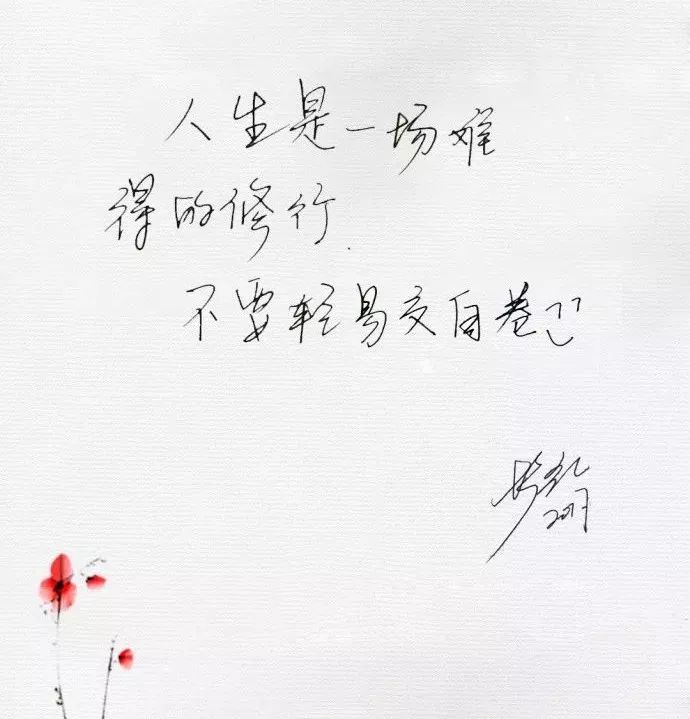 人生是一场难
得的修行.
不要轻易交白卷
2017